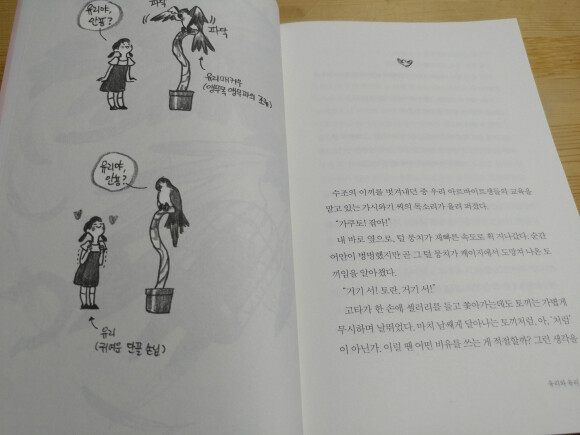 유리야,
안녕?
파닥
파닥
유리매커우
(앵무목 앵무과의 조류)
유리야,
안녕?
유리
(귀여운 단골 손님)
수조의 이끼를 벗겨내던 중 우리 아르바이트생들의 교육을
맡고 있는 가시와기 씨의 목소리가 울려 퍼졌다.
“가쿠토! 잡아!”
내 바로 옆으로, 털 뭉치가 재빠른 속도로 휙 지나갔다. 순간
어안이 벙벙했지만 곧 그 털 뭉치가 케이지에서 도망쳐 나온 토
끼임을 알아챘다.
“거기 서! 토란, 거기 서!”
고타가 한 손에 셀러리를 들고 쫓아가는데도 토끼는 가볍게
무시하며 날뛰었다. 마치 날쌔게 달아나는 토끼처럼, 아, ‘처럼’
이 아닌가. 이럴 땐 어떤 비유를 쓰는 게 적절할까? 그런 생각을